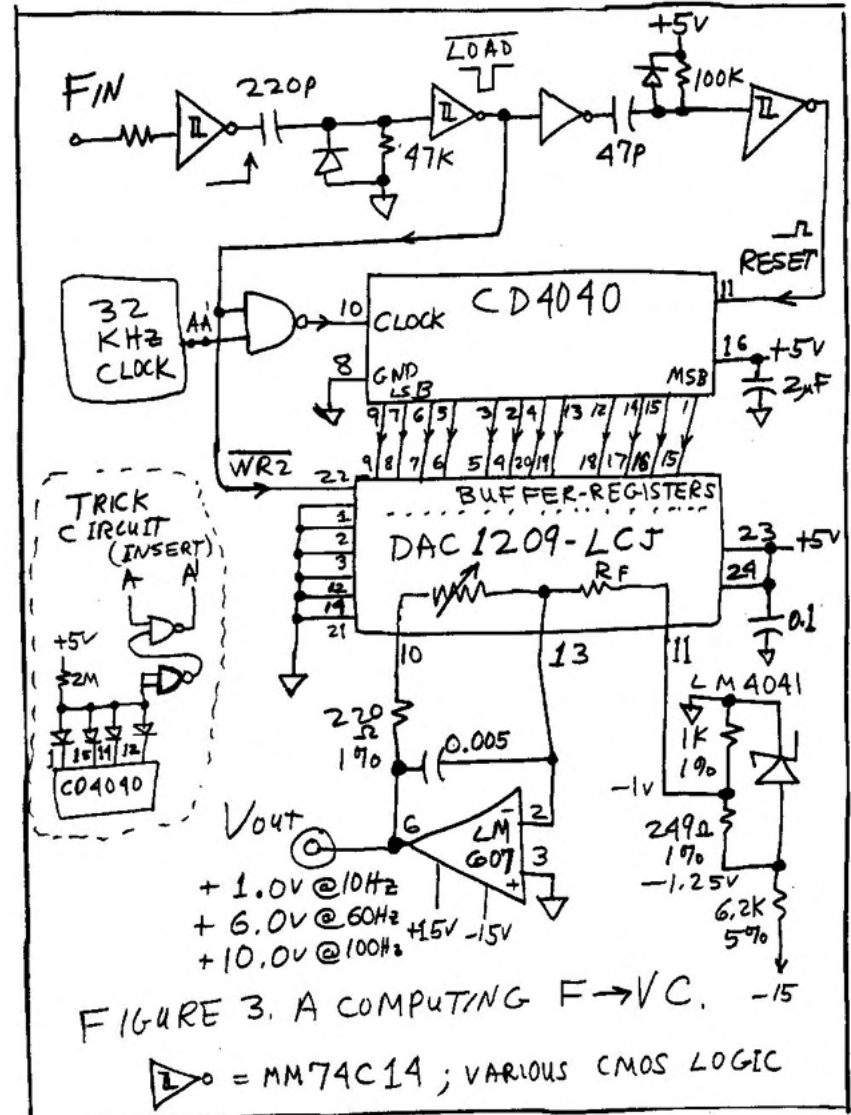 LOAD
+5V
FIN
220P
100K
47K
47P
RESET
32
KHz
CLOCK
A A'
10
CLOCK
CD4040
11
8
GND
LSB
MSB
16
+5V
2µF
9 7 6 5 3 2 4 13 12 14 15 1
9 8 7 6 5 4 20 19 18 17 16 15
WR2
22
BUFFER-REGISTERS
1
2
3
12
14
21
DAC1209-LCJ
RF
23
+5V
24
0.1
10
13
11
TRICK
CIRCUIT
(INSERT)
A A'
+5V
2M
1 15 14 12
CD4040
220
Ω
1%
0.005
LM4041
1K
1%
-1V
249Ω
1%
-1.25V
6.2K
5%
-15
Vout
6
LM
607
- 2
+ 3
+15V -15V
+ 1.0V @10Hz
+ 6.0V @60Hz
+ 10.0V @100Hz
FIGURE 3. A COMPUTING F→VC.
= MM74C14 ; VARIOUS CMOS LOGIC